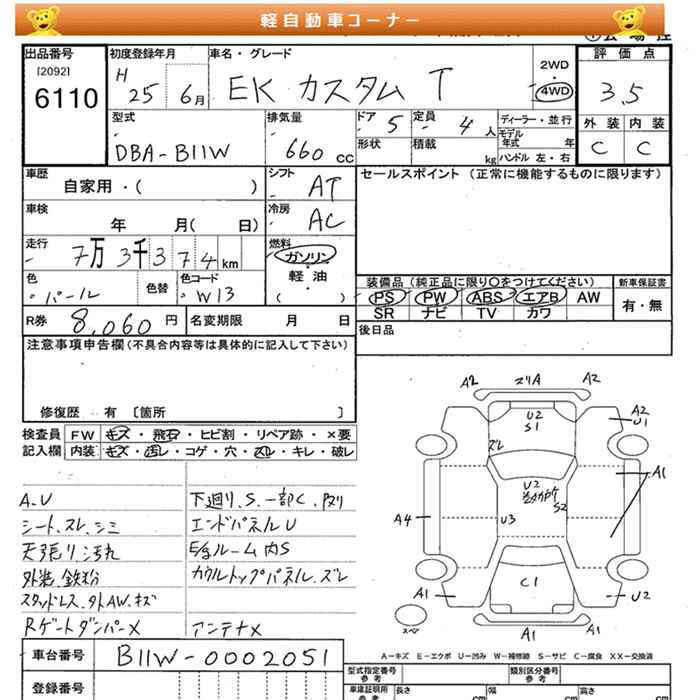 軽自動車コーナー
出品番号 初度登録年月 車名・グレード 2WD 評価点
[2092] H
6110 25 6月 EK カスタム T 4WD 3.5
型式 排気量 ドア 5 定員 4人 ディーラー・並行 外装 内装
DBA-B11W 660cc 形状 積載 kg モデル年式 年 C C
ハンドル 左・右
車歴 シフト セールスポイント (正常に機能するものに限ります)
自家用・( ) AT
車検 冷房
年 月( 日) AC
走行 燃料
7万 3千 3 7 4 km ガソリン
軽・油
色 色替 色コード ( )
パール W13
装備品 (純正品に限り○をつけてください) 新車保証書
PS PW ABS エアB AW 有・無
SR ナビ TV カワ
R券 8,060円 名変期限 月 日
後日品
注意事項申告欄(不具合内容等は具体的に記入して下さい)
修復歴 有 〔箇所 〕
検査員 FW キズ・飛石・ヒビ割・リペア跡・×要
記入欄 内装 キズ・汚レ・コゲ・穴・スレ・キレ・破レ
A.U
シート、スレ、シミ
天張り汚れ
外装、鉄粉
スタッドレス、外AW、キズ
Rゲートダンパー×
下廻り、S、一部C
エンドパネルU
E/gルーム内S
カウルトップパネル、ズレ
アンテナ×
A2 スリA A2
U2
S1
A2
U1
ズレ
U2
S2
A1
A4
U3
C1
A1 U2
スペア
A1 A1
A-キズ E-エクボ U-凹み W-補修跡 S-サビ C-腐食 XX-交換済
車台番号 B11W-0002051
登録番号
型式指定番号 参考 類別区分番号 参考
車庫証明用 参考 長さ cm 幅 cm 高さ cm